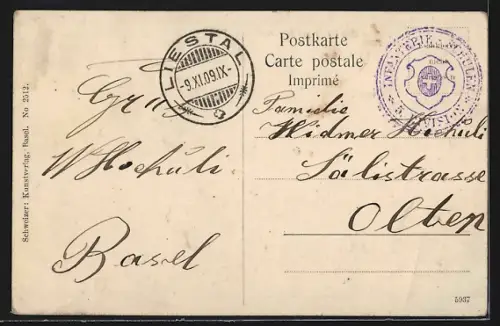 Schweizer. Kunstverlag, Basel. No 2012.
Gruss
W Hochuli
Basel
LIESTAL
-9.XI.09.IX-
Postkarte
Carte postale
Imprimé
INFANTERIE SCHULEN
DIVISION
Familie
Widmer Hochuli
Sälistrasse
Olten
5937